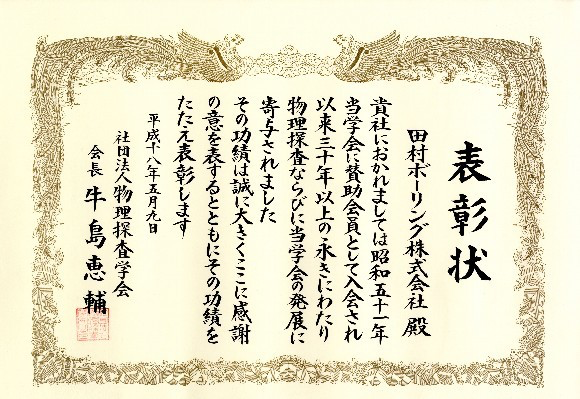 表彰状
田村ボーリング株式会社 殿
貴社におかれましては昭和五十一年
当学会に賛助会員として入会され
以来三十年以上の永きにわたり
物理探査ならびに当学会の発展に
寄与されました
その功績は誠に大きくここに感謝
の意を表するとともにその功績を
たたえ表彰します
平成十八年五月九日
社団法人物理探査学会
会長 牛島恵輔